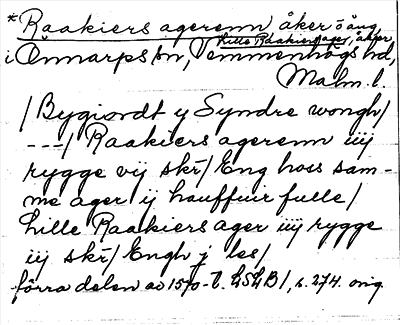 *Raakiers agerenn åker o äng,
lille Raakiers ager, åker
i Önnarps sn, Vemmenhögs hd,
Malm. l.
/Bygiordt y Syndre wongh/
---/Raakiers agerenn iiij
rygge vij skr/Eng hoss sam-
me ager ij hauffuir fulle/
Lille Raakiers ager iiij rygge
iij skr/Engh j les/
förra delen av 1570-t. LSLB1, s. 274. orig.